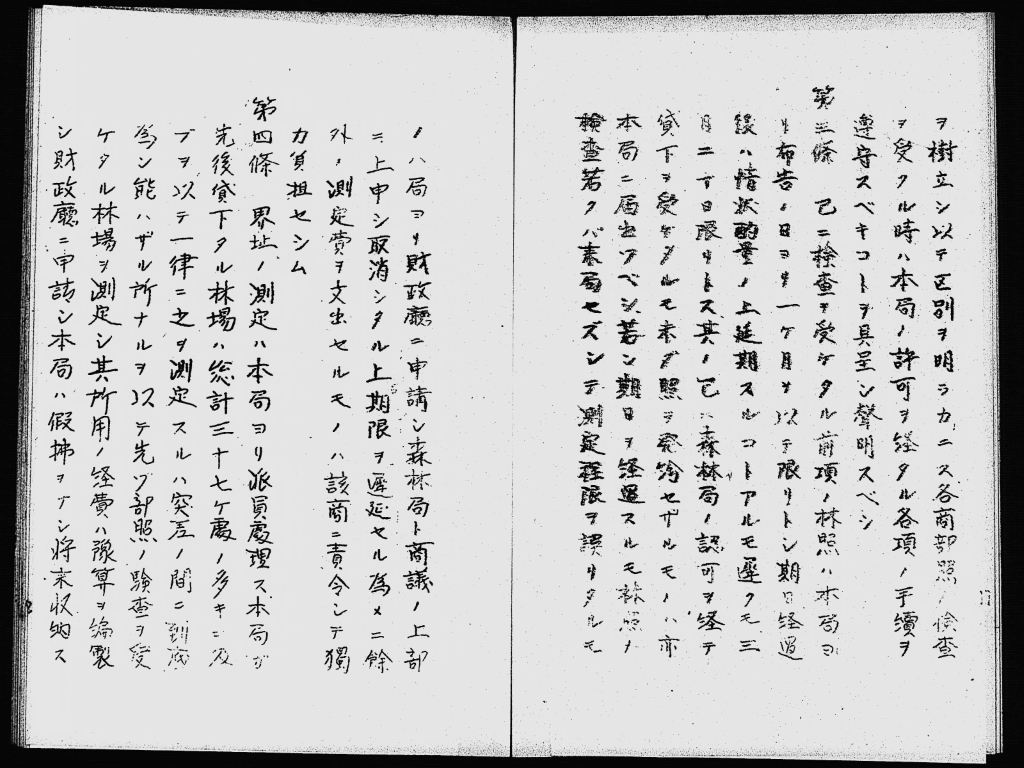 ヲ樹立シ以テ区別ヲ明ラカニス各商部照ノ検査
ヲ受クル時ハ本局ノ許可ヲ経タル各項ノ手續ヲ
遵守スベキコトヲ具呈シ聲明スベシ
第三條 己ニ検査ヲ受ケタル前項ノ林照ハ本局ヨ
リ布告ノ日ヨリ一ケ月ヲ以テ限リトシ期日経過
後ハ情状酌量ノ上延期スルコトアルモ遅クモ三
月二十日限リトス其ノ己ニ森林局ノ認可ヲ経テ
貸下ヲ受ケタルモ未ダ照ヲ発給セザルモノハ亦
本局ニ届出ツベシ若シ期日ヲ経過スルモ林照ノ
検査若クハ来局セズシテ測定程限ヲ誤リタルモ
ノハ局ヨリ財政廳ニ申請シ森林局ト商議ノ上部
ニ上申シ取消シタル上期限ヲ遲延セル為メニ餘
外ノ測定費ヲ支出セルモノハ該商ニ責令シテ獨
力負担セシム
第四條 界址ノ測定ハ本局ヨリ派員處理ス本局ガ
先後貸下タル林場ハ総計三十七ケ處ノ多キニ及
ブヲ以テ一律ニ之ヲ測定スルハ突差ノ間ニ到底
為シ能ハザル所ナルヲ以テ先ヅ部照ノ験査ヲ受
ケタル林場ヲ測定シ其所用ノ経費ハ豫算ヲ編製
シ財政廳ニ申請シ本局ハ假拂ヲナシ将来収納ス